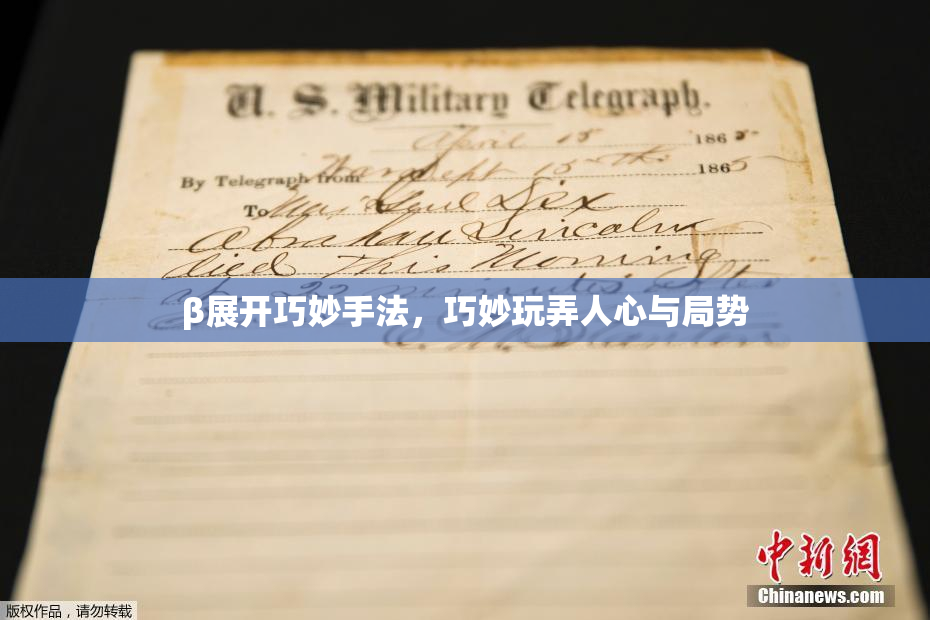 U. S. Military Telegraph.
April 15 1865
By Telegraph from War Dept 15th 1865
To Maj Genl Dix
Abraham Lincoln
died This Morning
at 22 minutes after
β展开巧妙手法，巧妙玩弄人心与局势
E. M. Stanton
中新網
Chinanews.com
版权作品，请勿转载